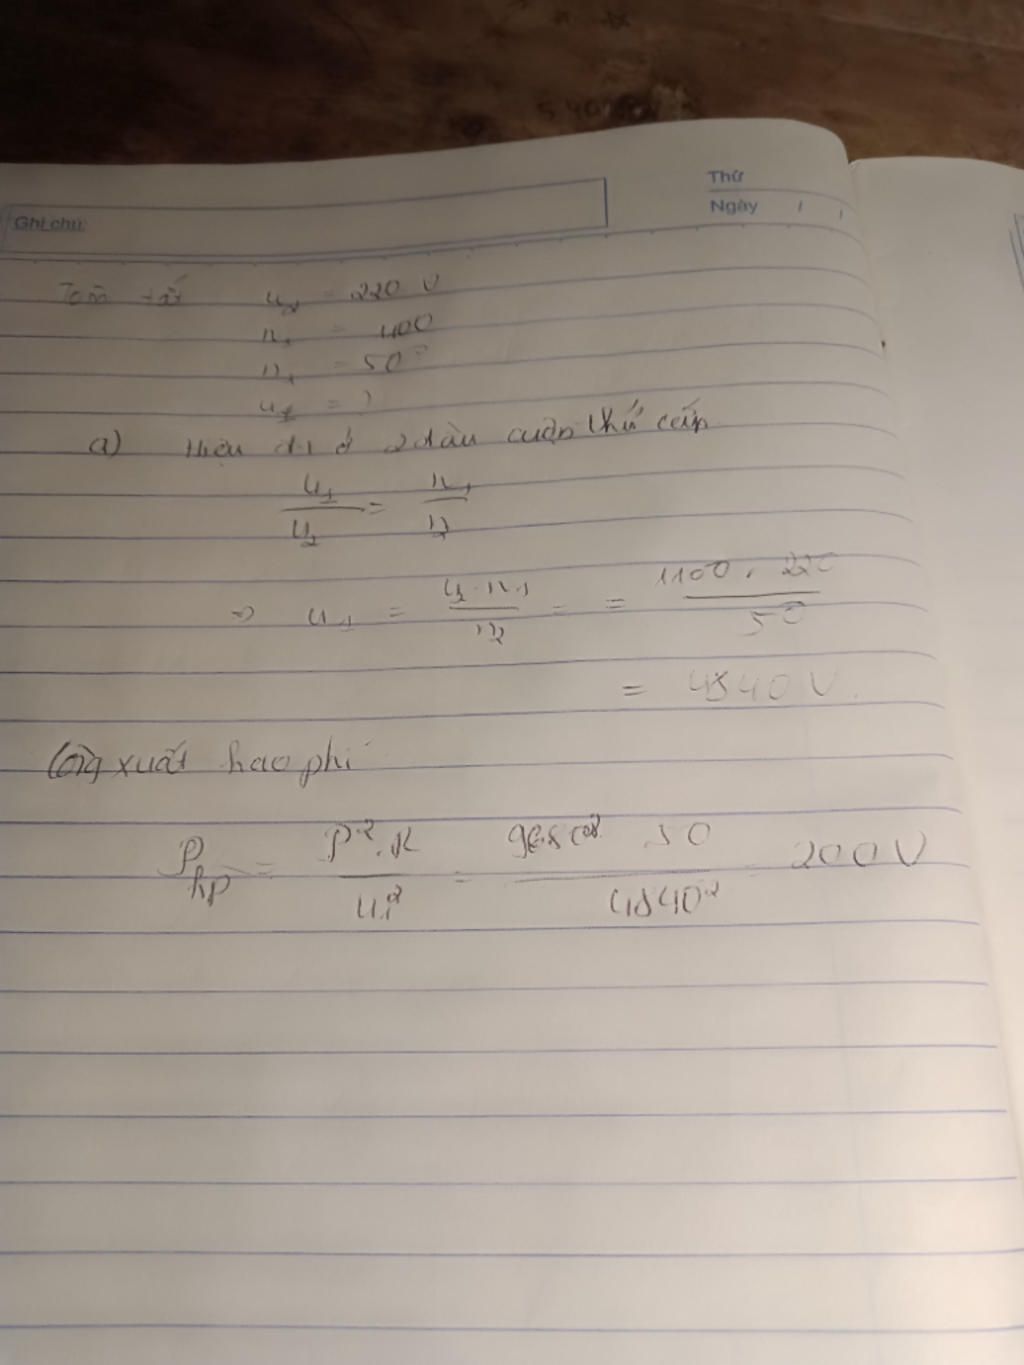 Thứ
Ngày / /
Ghi chú
Tóm tắt u₂ = 220 V
n₁ = 400
n₁ = 50
u₁ = ?
a) Hiệu đ.t ở 2 đầu cuộn thứ cấp
u₁/u₂ = n₁/n₂
⇒ u₁ = u₂.n₁/n₂ = = 1100.220/50
= 4840 V.
Công xuất hao phí
P_hp = P².R/u₁² = 50/4840² = 200 V